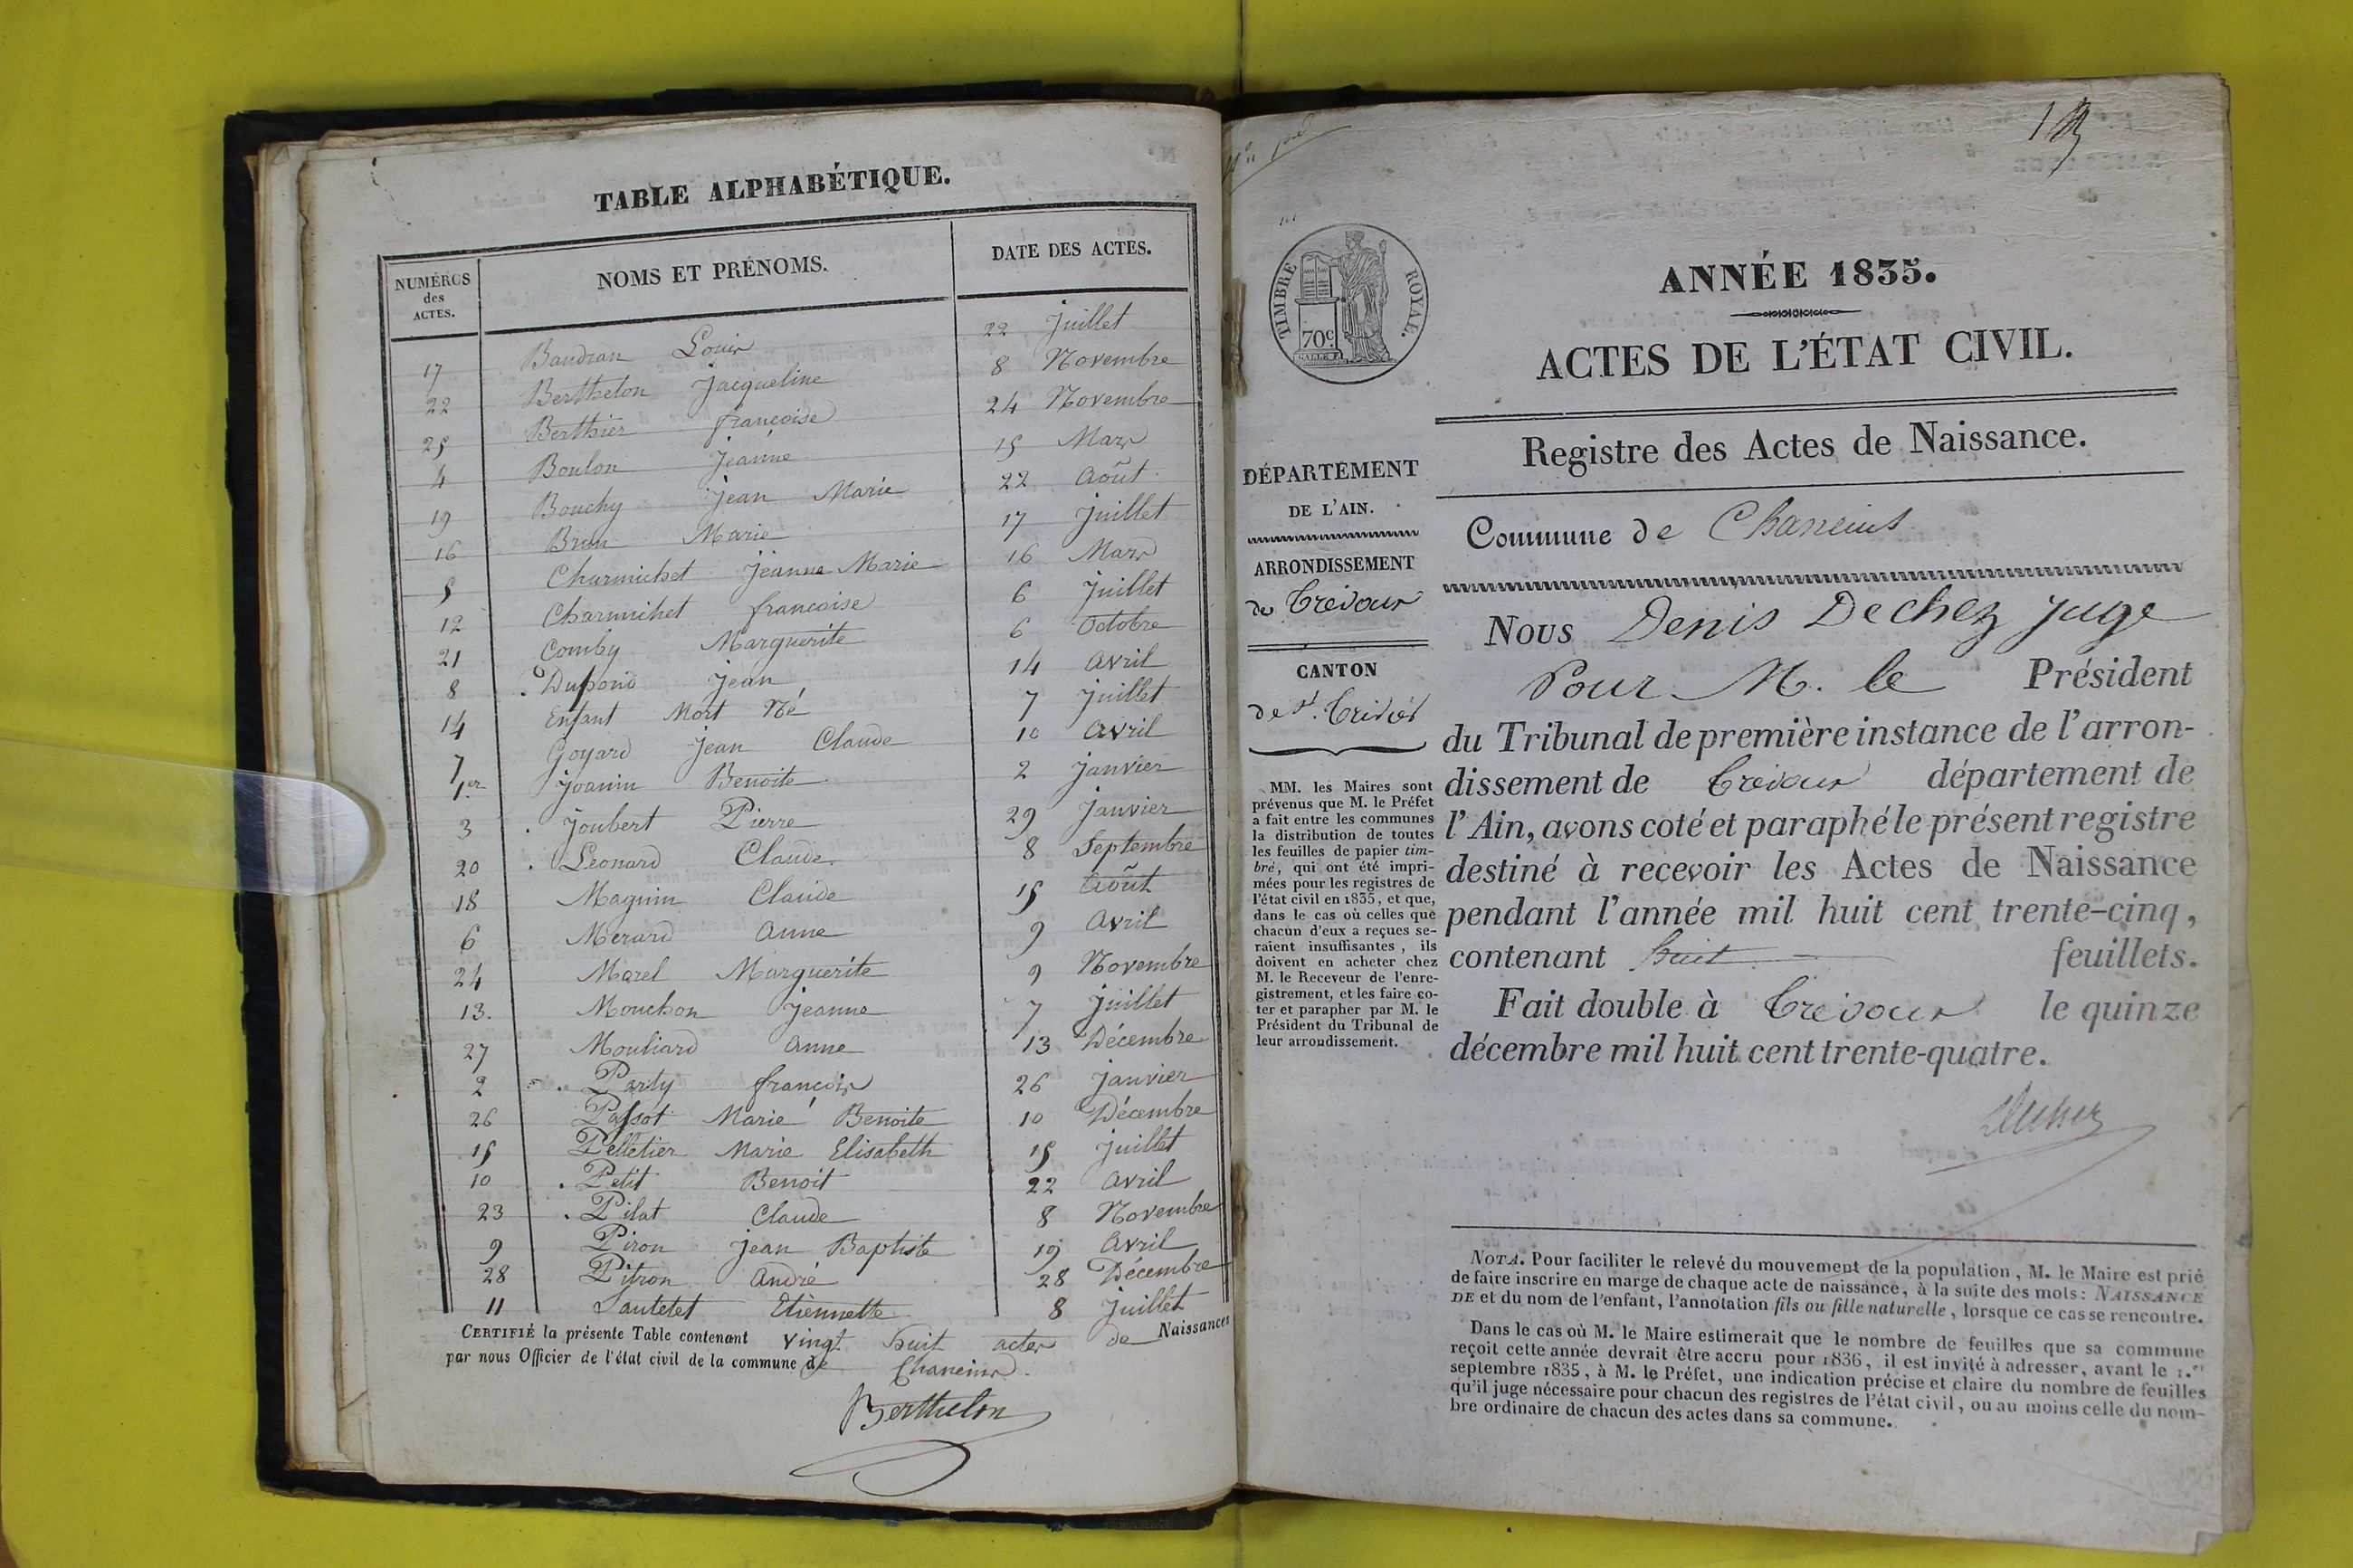 TABLE ALPHABÉTIQUE.
NUMÉROS des ACTES. NOMS ET PRÉNOMS. DATE DES ACTES.
17 Baudran Louis 22 Juillet
22 Berthelon Jacqueline 8 Novembre
25 Berthier françoise 24 Novembre
4 Boulon Jeanne 15 Mars
19 Bouchy Jean Marie 22 Août
16 Brun Marie 17 Juillet
5 Charmichet Jeanne Marie 16 Mars
12 Charmichet francoise 6 Juillet
21 Comby Marguerite 6 Octobre
8 Dupond Jean 14 Avril
14 Enfant Mort Né 7 Juillet
7 Goyard Jean Claude 10 Avril
1er Joanin Benoite 2 Janvier
3 Joubert Pierre 29 Janvier
20 Léonard Claude 8 Septembre
18 Magnin Claude 15 Août
6 Merard Anne 9 Avril
24 Morel Marguerite 9 Novembre
13. Mouchon Jeanne 7 Juillet
27 Mouliard Anne 13 Décembre
2 Party françois 26 Janvier
26 Passot Marie Benoite 10 Décembre
15 Pelletier Marie Elisabeth 15 Juillet
10 Petit Benoit 22 Avril
23 Pilat Claude 8 Novembre
9 Piron Jean Baptiste 19 Avril
28 Pitron André 28 Décembre
11 Sautetet Etiennette 8 Juillet
CERTIFIÉ la présente Table contenant vingt huit actes de Naissances
par nous Officier de l'état civil de la commune de Chaneins.
Berthelon
TIMBRE ROYAL.
70c
ANNÉE 1835.
ACTES DE L'ÉTAT CIVIL.
Registre des Actes de Naissance.
DÉPARTEMENT
DE L'AIN.
ARRONDISSEMENT
de Trévoux
CANTON
de St. Trivier
MM. les Maires sont
prévenus que M. le Préfet
a fait entre les communes
la distribution de toutes
les feuilles de papier tim-
bré, qui ont été impri-
mées pour les registres de
l'état civil en 1835, et que,
dans le cas où celles que
chacun d'eux a reçues se-
raient insuffisantes, ils
doivent en acheter chez
M. le Receveur de l'enre-
gistrement, et les faire co-
ter et parapher par M. le
Président du Tribunal de
leur arrondissement.
Commune de Chaneins
Nous Denis Dechez juge
Pour M. le Président
du Tribunal de première instance de l'arron-
dissement de Trévoux département de
l'Ain, avons coté et paraphé le présent registre
destiné à recevoir les Actes de Naissance
pendant l'année mil huit cent trente-cinq,
contenant huit feuillets.
Fait double à Trévoux le quinze
décembre mil huit cent trente-quatre.
Dechez
NOTA. Pour faciliter le relevé du mouvement de la population, M. le Maire est prié
de faire inscrire en marge de chaque acte de naissance, à la suite des mots: NAISSANCE
DE et du nom de l'enfant, l'annotation fils ou fille naturelle, lorsque ce cas se rencontre.
Dans le cas où M. le Maire estimerait que le nombre de feuilles que sa commune
reçoit cette année devrait être accru pour 1836, il est invité à adresser, avant le 1.er
septembre 1835, à M. le Préfet, une indication précise et claire du nombre de feuilles
qu'il juge nécessaire pour chacun des registres de l'état civil, ou au moins celle du nom-
bre ordinaire de chacun des actes dans sa commune.